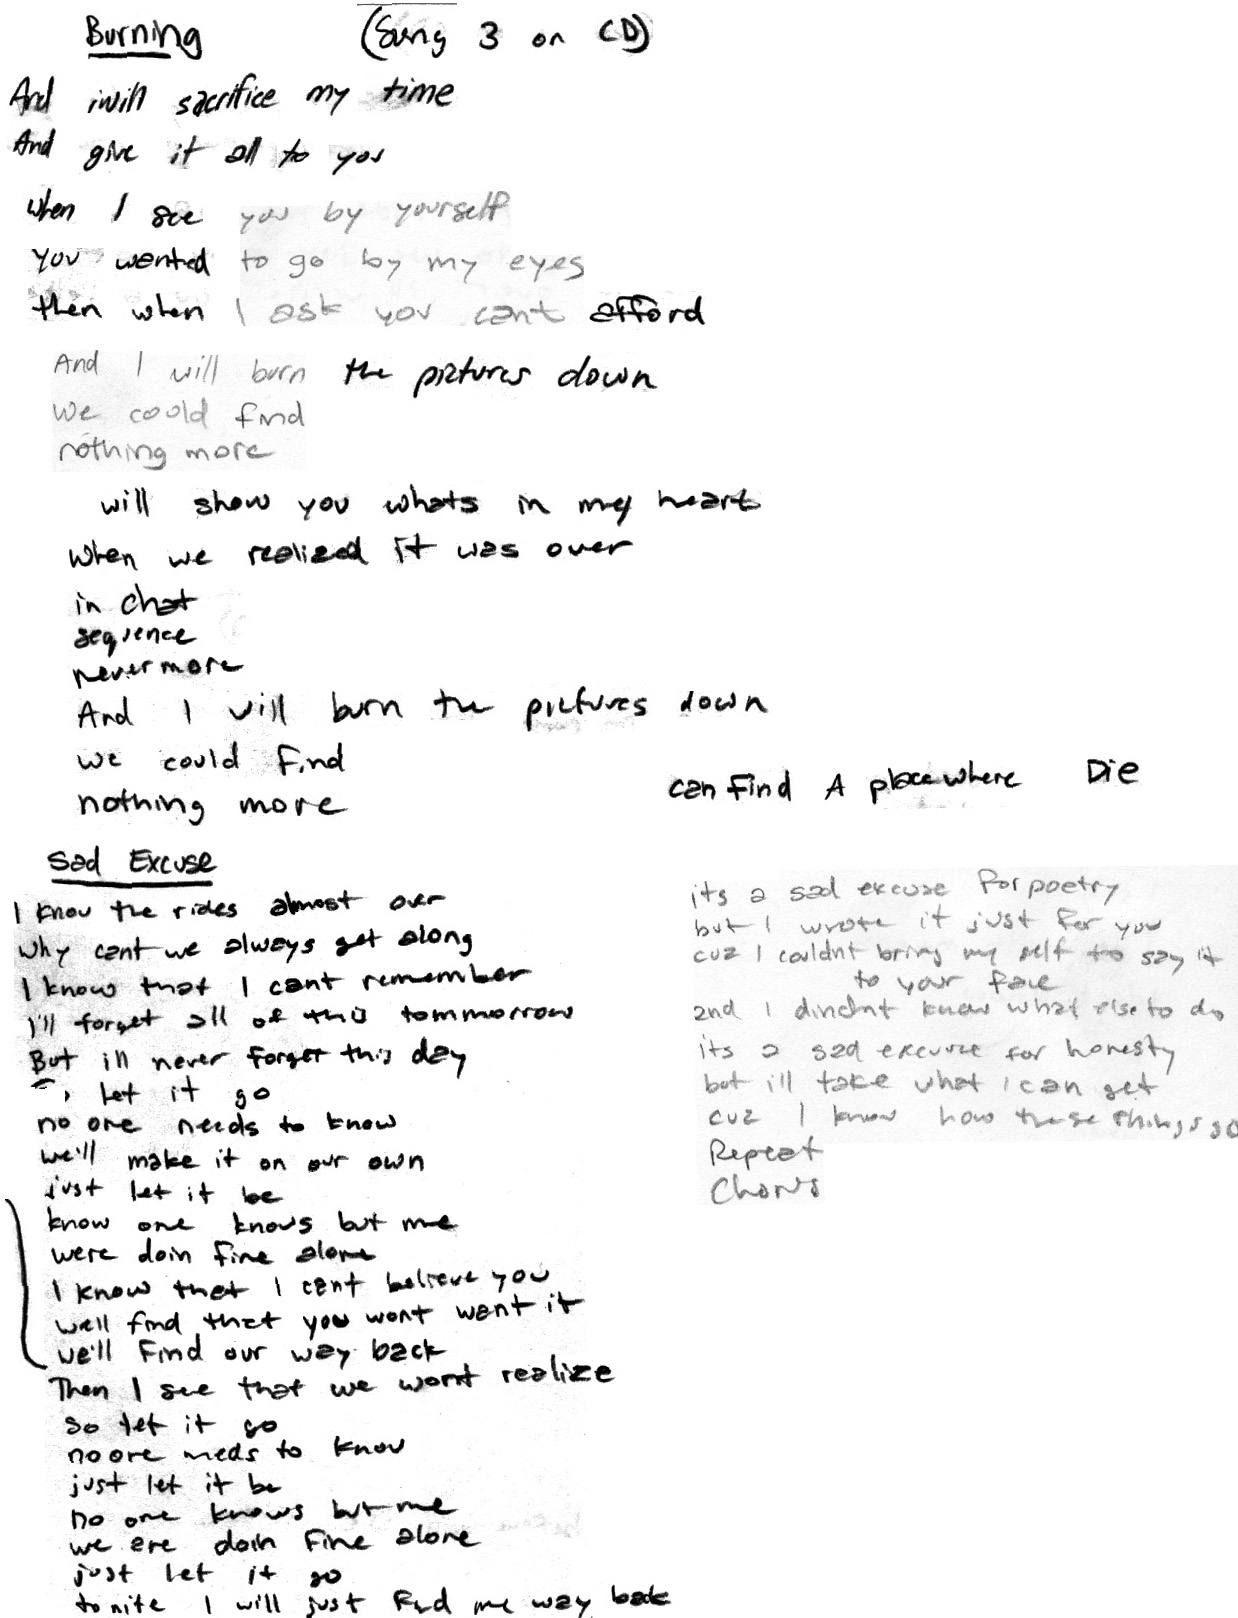 Burning (Song 3 on CD)
And iwill sacrifice my time
And give it all to you
when I see you by yourself
you wanted to go by my eyes
then when I ask you cant afford
And I will burn the pictures down
We could find
nothing more
will show you whats in my heart
when we realized it was over
in chat
sequence
nevermore
And I will burn the pictures down
we could find
nothing more
can find A place where Die
Sad Excuse
I know the rides almost over
why cant we always get along
I know that I cant remember
I'll forget all of this tommorrow
But ill never forget this day
let it go
no one needs to know
we'll make it on our own
just let it be
know one knows but me
were doin fine alone
I know that I cant believe you
well find that you wont want it
we'll find our way back
Then I see that we wont realize
so let it go
no one needs to know
just let it be
no one knows but me
we are doin fine alone
just let it go
tonite I will just find me way back
its a sad excuse for poetry
but I wrote it just for you
cuz I couldnt bring my self to say it
to your face
and I dindnt know what else to do
its a sad excuse for honesty
but ill take what i can get
cuz I know how these things go
Repeat
Chorus